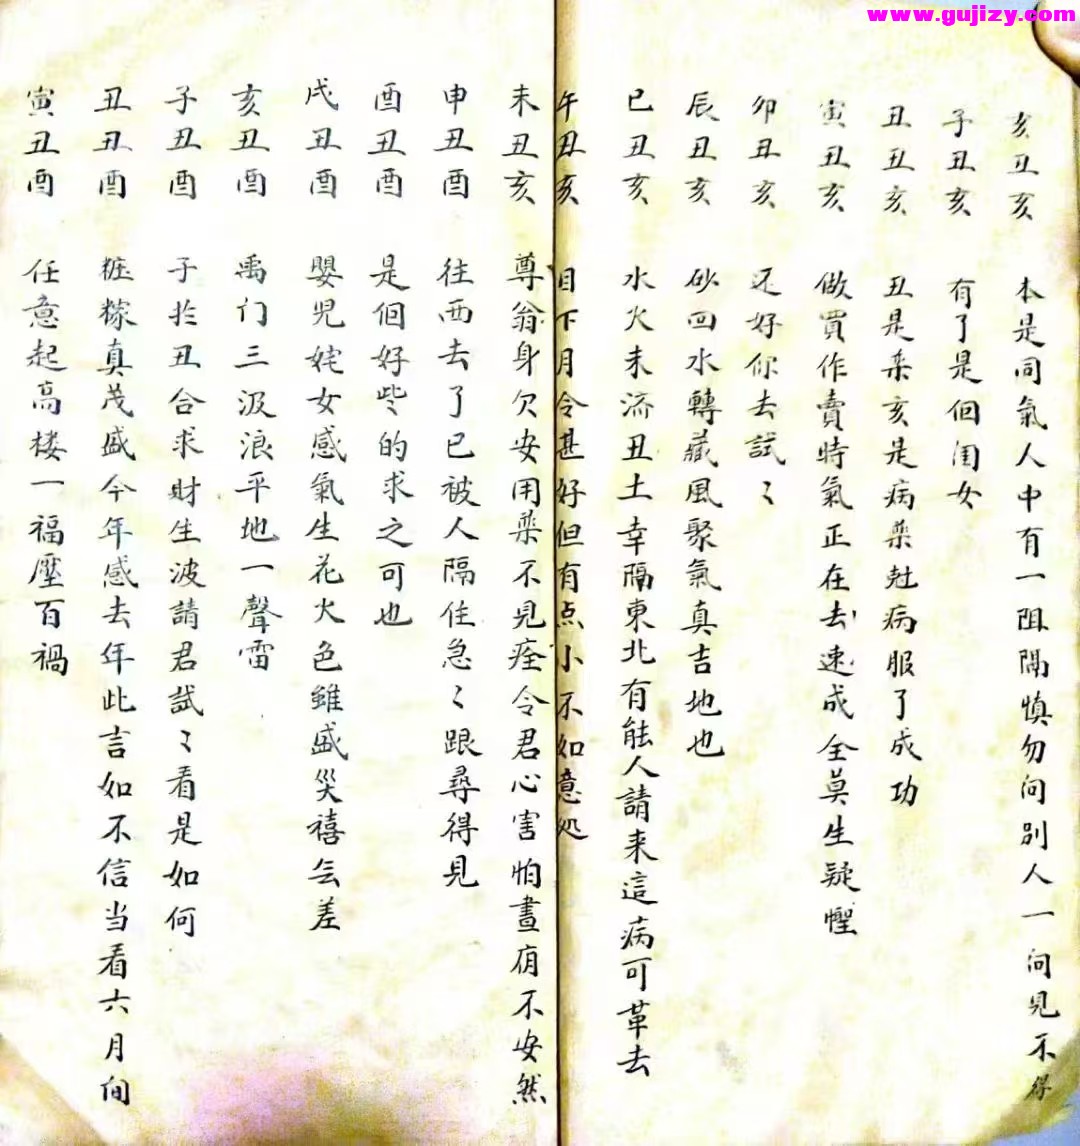 www.gujizy.com
亥丑亥 本是同氣人中有一阻隔慎勿问别人一问見不得
子丑亥 有了是佪闺女
丑丑亥 丑是藥亥是病藥尅病服了成功
寅丑亥 做買作賣時氣正在去速成全莫生疑慳
卯丑亥 还好你去試〻
辰丑亥 砂回水轉藏風聚氣真吉地也
巳丑亥 水火未済丑土幸隔東北有能人請来這病可革去
午丑亥 目下月令甚好但有点小不如意处
未丑亥 尊翁身欠安用藥不見痊令君心害怕晝夜不安然
申丑酉 往西去了已被人隔住急〻跟尋得見
酉丑酉 是佪好些的求之可也
戌丑酉 嬰児姹女感氣生花火色雖盛災禧会差
亥丑酉 禹门三汲浪平地一聲雷
子丑酉 子扵丑合求財生波請君試〻看是如何
丑丑酉 粧稼真茂盛今年感去年此言如不信当看六月间
寅丑酉 任意起高楼一福壓百禍